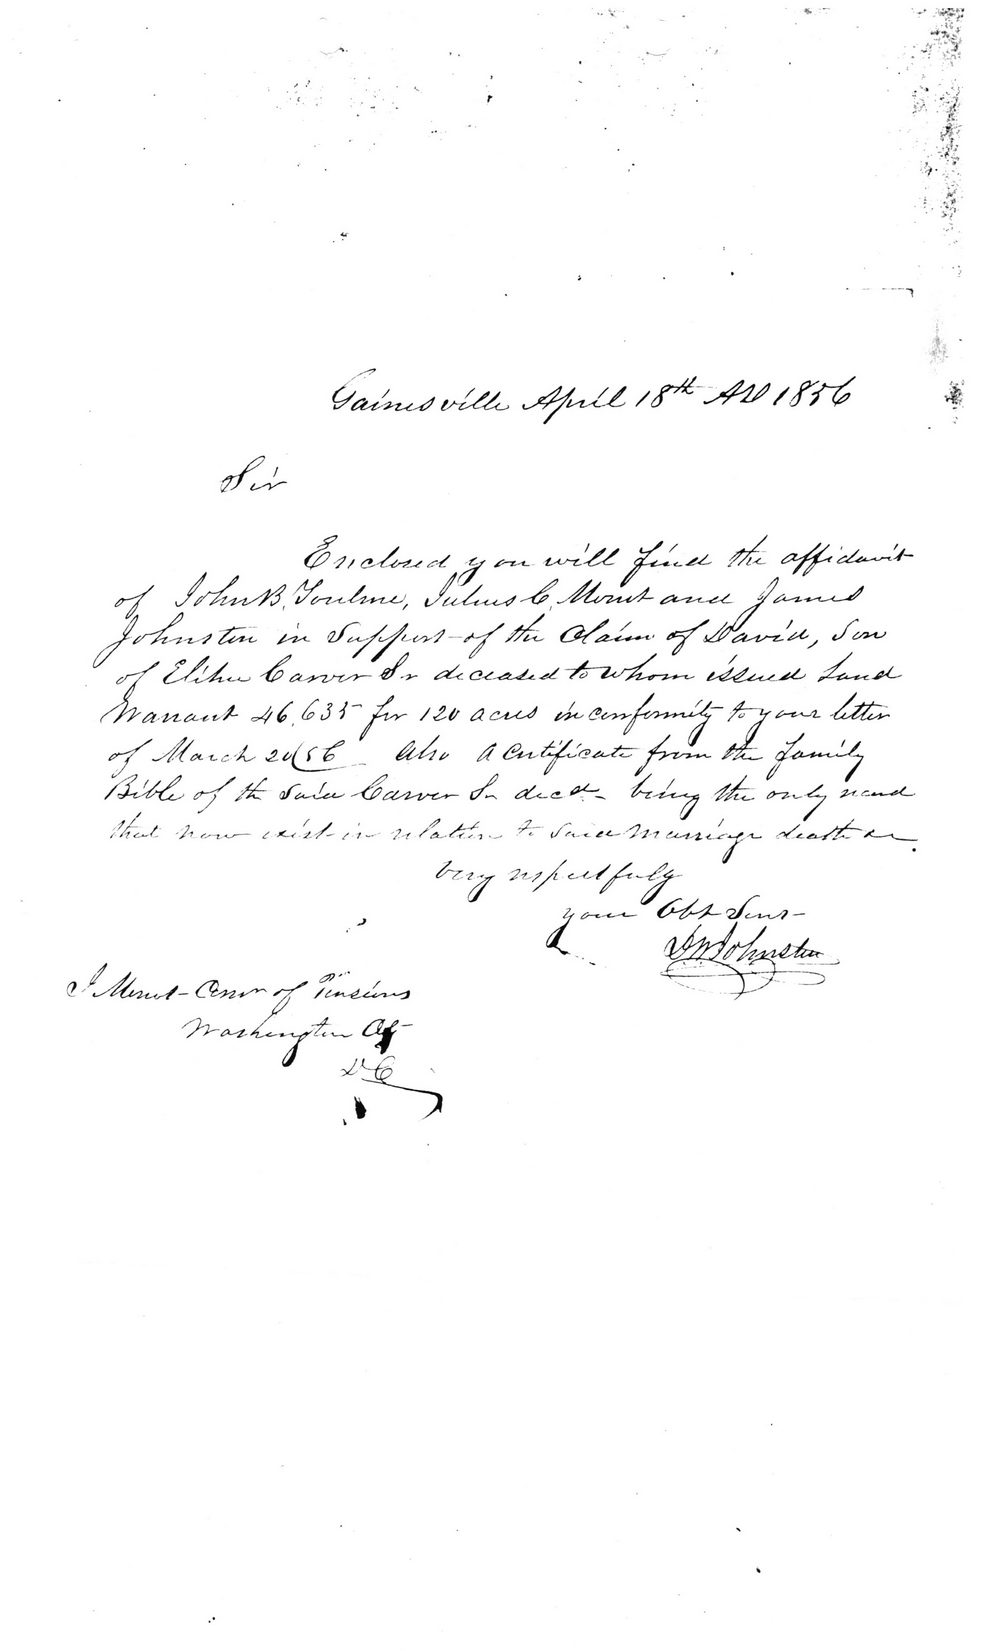 Gainesville April 18th AD 1856
Sir
Enclosed you will find the affidavit
of John B. Toulme, Julius C. Monet and James
Johnston in Support of the Claim of David, Son
of Elihu Carver Sr deceased to whom issued Land
Warrant 46,635 for 120 acres in conformity to your letter
of March 20/56 Also a Certificate from the family
Bible of the Said Carver Sr decd - being the only record
that now exist in relation to Said Marriage death &c.
Very respectfuly
your Obt Servt
Johnston
of Pensions
Washington City
DC